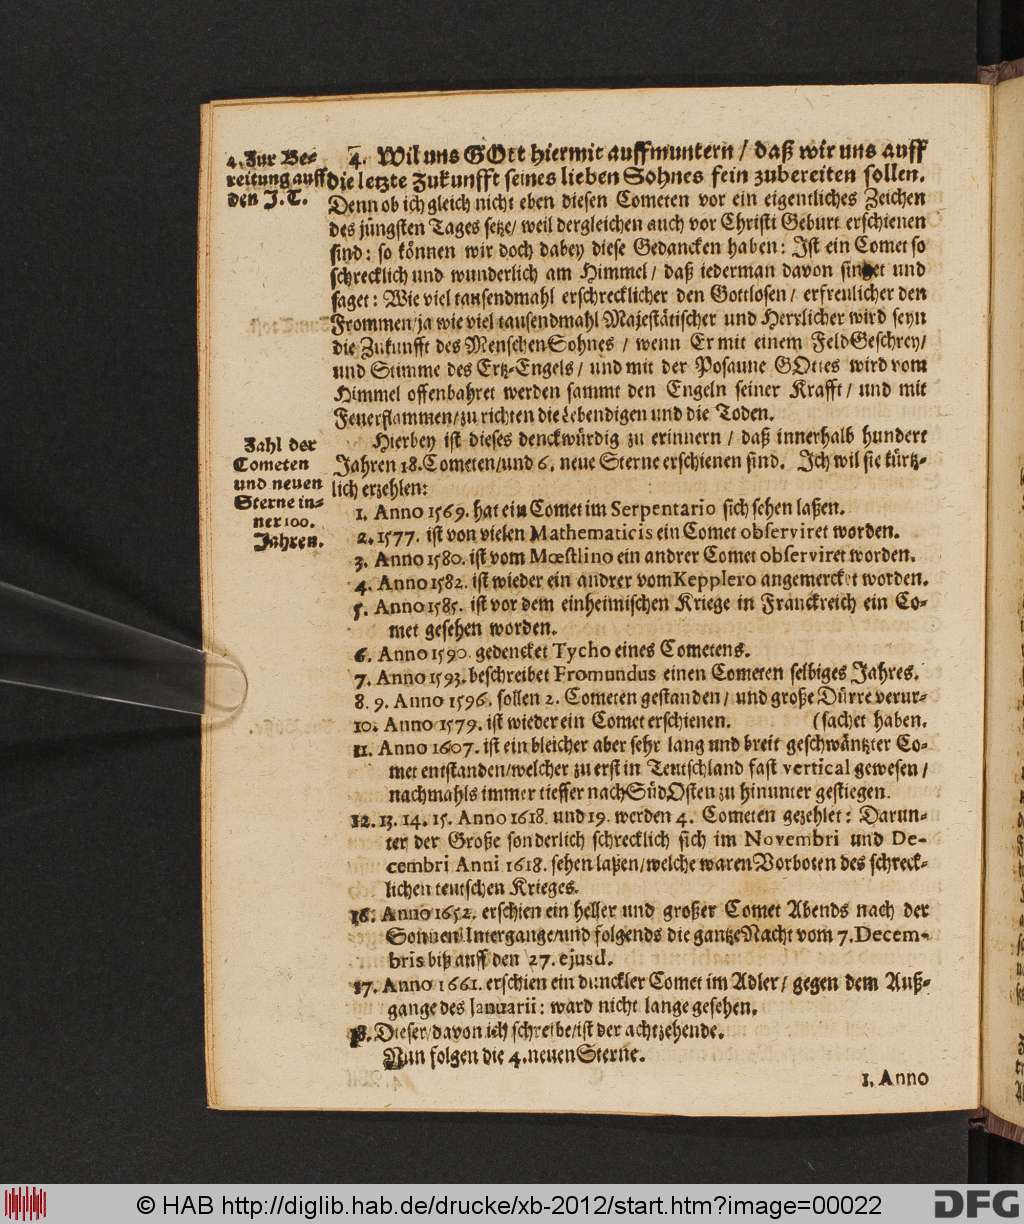 4. Zur Be-
reitung auff
den J. T.
4. Wil uns GOtt hiermit auffmuntern / daß wir uns auff
die letzte Zukunfft seines lieben Sohnes fein zubereiten sollen.
Denn ob ich gleich nicht eben diesen Cometen vor ein eigentliches Zeichen
des jüngsten Tages setze / weil dergleichen auch vor Christi Geburt erschienen
sind : so können wir doch dabey diese Gedancken haben : Ist ein Comet so
schrecklich und wunderlich am Himmel / daß iederman davon singet und
saget : Wie viel tausendmahl erschrecklicher den Gottlosen / erfreulicher den
Frommen / ja wie viel tausendmahl Majestätischer und Herrlicher wird seyn
die Zukunfft des MenschenSohnes / wenn Er mit einem FeldGeschrey /
und Stimme des Ertz-Engels / und mit der Posaune GOttes wird vom
Himmel offenbahret werden sammt den Engeln seiner Krafft / und mit
Feuerflammen / zu richten die Lebendigen und die Toden.
Zahl der
Cometen
und neuen
Sterne in-
ner 100.
Jahren.
Hierbey ist dieses denckwürdig zu erinnern / daß innerhalb hundert
Jahren 18. Cometen / und 6. neue Sterne erschienen sind. Ich wil sie kürtz-
lich erzehlen :
1. Anno 1569. hat ein Comet im Serpentario sich sehen laßen.
2. 1577. ist von vielen Mathematicis ein Comet observiret worden.
3. Anno 1580. ist vom Mœstlino ein andrer Comet observiret worden.
4. Anno 1582. ist wieder ein andrer vom Kepplero angemercket worden.
5. Anno 1585. ist vor dem einheimischen Kriege in Franckreich ein Co-
met gesehen worden.
6. Anno 1590. gedencket Tycho eines Cometens.
7. Anno 1593. beschreibet Fromundus einen Cometen selbiges Jahres.
8. 9. Anno 1596. sollen 2. Cometen gestanden / und große Dürre verur-
10. Anno 1579. ist wieder ein Comet erschienen. (sachet haben.
11. Anno 1607. ist ein bleicher aber sehr lang und breit geschwäntzter Co-
met entstanden / welcher zu erst in Teutschland fast vertical gewesen /
nachmahls immer tieffer nach SüdOsten zu hinunter gestiegen.
12. 13. 14. 15. Anno 1618. und 19. werden 4. Cometen gezehlet : Darun-
ter der Große sonderlich schrecklich sich im Novembri und De-
cembri Anni 1618. sehen laßen / welche waren Vorboten des schreck-
lichen teutschen Krieges.
16. Anno 1652. erschien ein heller und großer Comet Abends nach der
Sonnen Untergange / und folgends die gantze Nacht vom 7. Decem-
bris biß auff den 27. ejusd.
17. Anno 1661. erschien ein dunckler Comet im Adler / gegen dem Auß-
gange des Januarii : ward nicht lange gesehen.
18. Dieser / davon ich schreibe / ist der achtzehende.
Nun folgen die 4. neuen Sterne.
1. Anno
© HAB http://diglib.hab.de/drucke/xb-2012/start.htm?image=00022
DFG